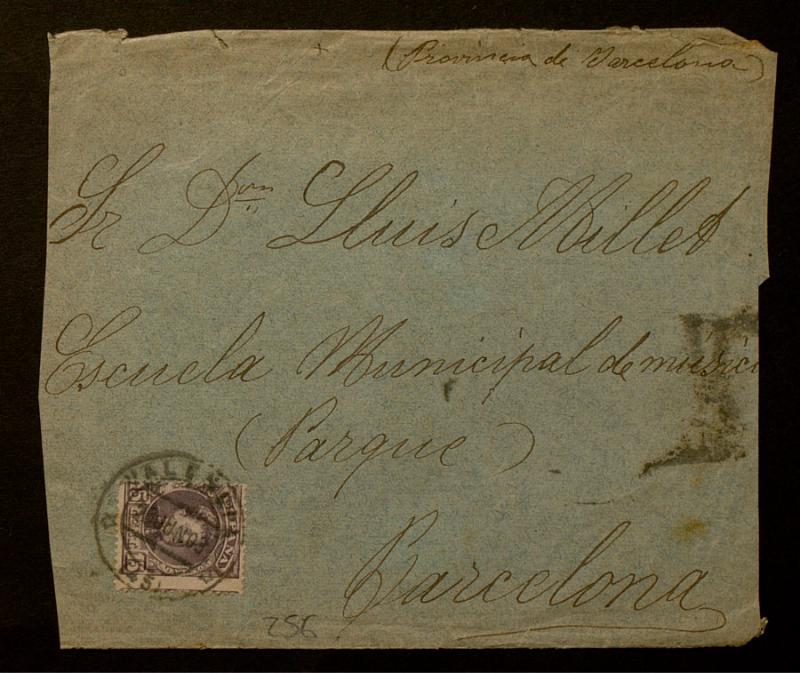 (Provincia de Barcelona)
Sr Don Lluis Millet
Escuela Municipal de music
(Parque)
Barcelona
VALEN
ESPAÑA
15
15
256